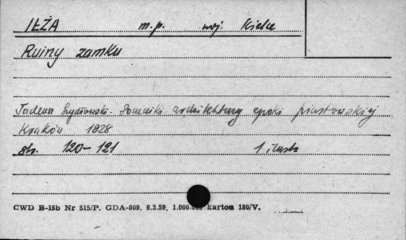 IŁŻA m.p. woj. Kielce
Ruiny zamku
Tadeusz Szydłowski. Pomniki architektury epoki piastowskiej
Kraków 1928
str. 120-121 1 ilustr
CWD B-15b Nr 515/P. GDA-809. 6.3.59. 1.000.000 karton 180/V.